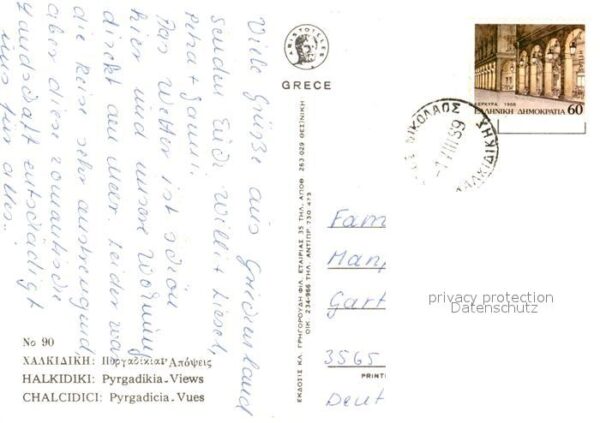 Viele Grüße aus Griechenland
senden Euch Willi + Liesel,
Petra +
Das Wetter ist schön
hier und unsere Wohnung
direkt am Meer. Leider war
die Reise sehr anstrengend,
aber diese romantische
Landschaft entschädigt
uns für alles.
No 90
ΧΑΛΚΙΔΙΚΗ: Πυργαδίκια-Απόψεις
HALKIDIKI: Pyrgadikia-Views
CHALCIDICI: Pyrgadicia-Vues
ARISTOTELES
GRECE
ΕΚΔΟΣΙΣ ΚΛ. ΓΡΗΓΟΡΟΥΔΗ ΦΙΛ. ΕΤΑΙΡΙΑΣ 35 ΤΗΛ. ΑΠΟΘ. 263 029 ΘΕΣ)ΝΙΚΗ
ΟΙΚ. 234-966 ΤΗΛ. ΑΝΤΙΠΡ. 730 473
ΚΕΡΚΥΡΑ. 1988
ΕΛΛΗΝΙΚΗ ΔΗΜΟΚΡΑΤΙΑ 60
ΝΙΚΟΛΑΟΣ
ΧΑΛΚΙΔΙΚΗΣ
Fam
Gart
3565
PRINT
Deut
privacy protection
Datenschutz